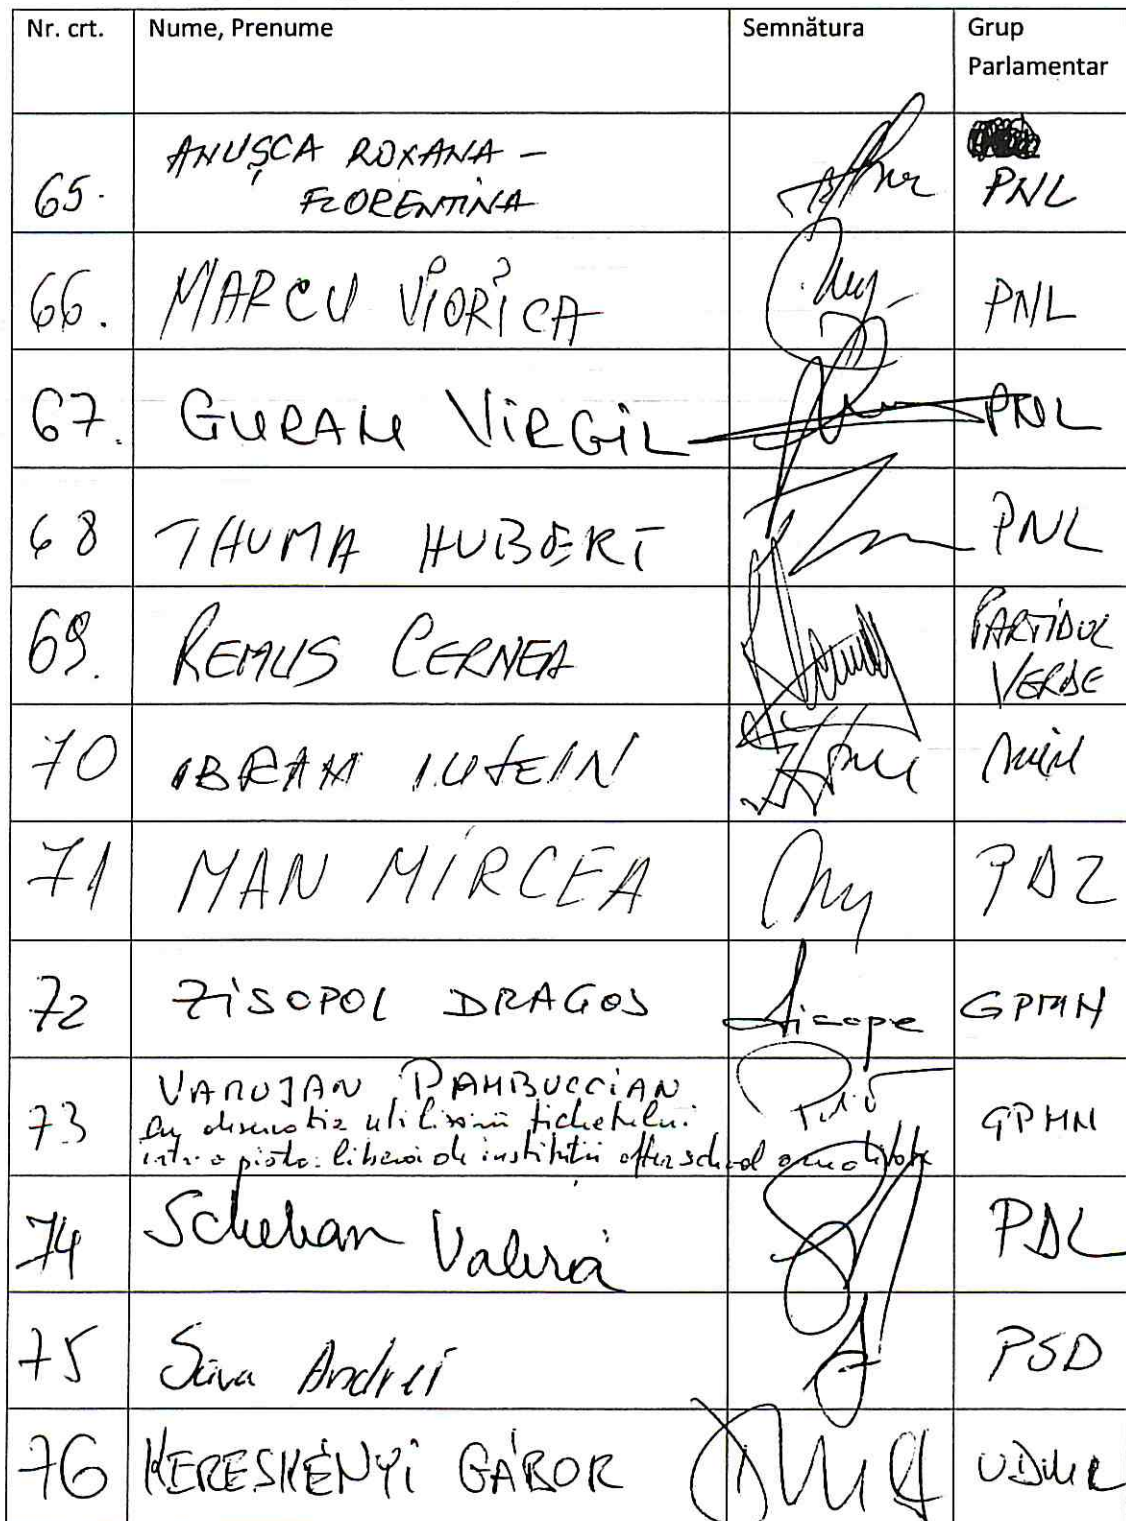 Nr. crt. Nume, Prenume Semnătura Grup
Parlamentar
65. ANUȘCA ROXANA - FLORENTINA PNL
66. MARCU VIORICA PNL
67. GURAM VIRGIL PNL
68 THUMA HUBERT PNL
69. REMUS CERNEA PARTIDUL VERDE
70 IBRAM IUSEIN
71 MAN MIRCEA
72 ZISOPOL DRAGOS GPMN
73 VARUJAN PAMBUCCIAN GPMN
74 Schelean Valeria PDL
75 Sava Andrei PSD
76 KERESKÉNYI GÁBOR UDMR